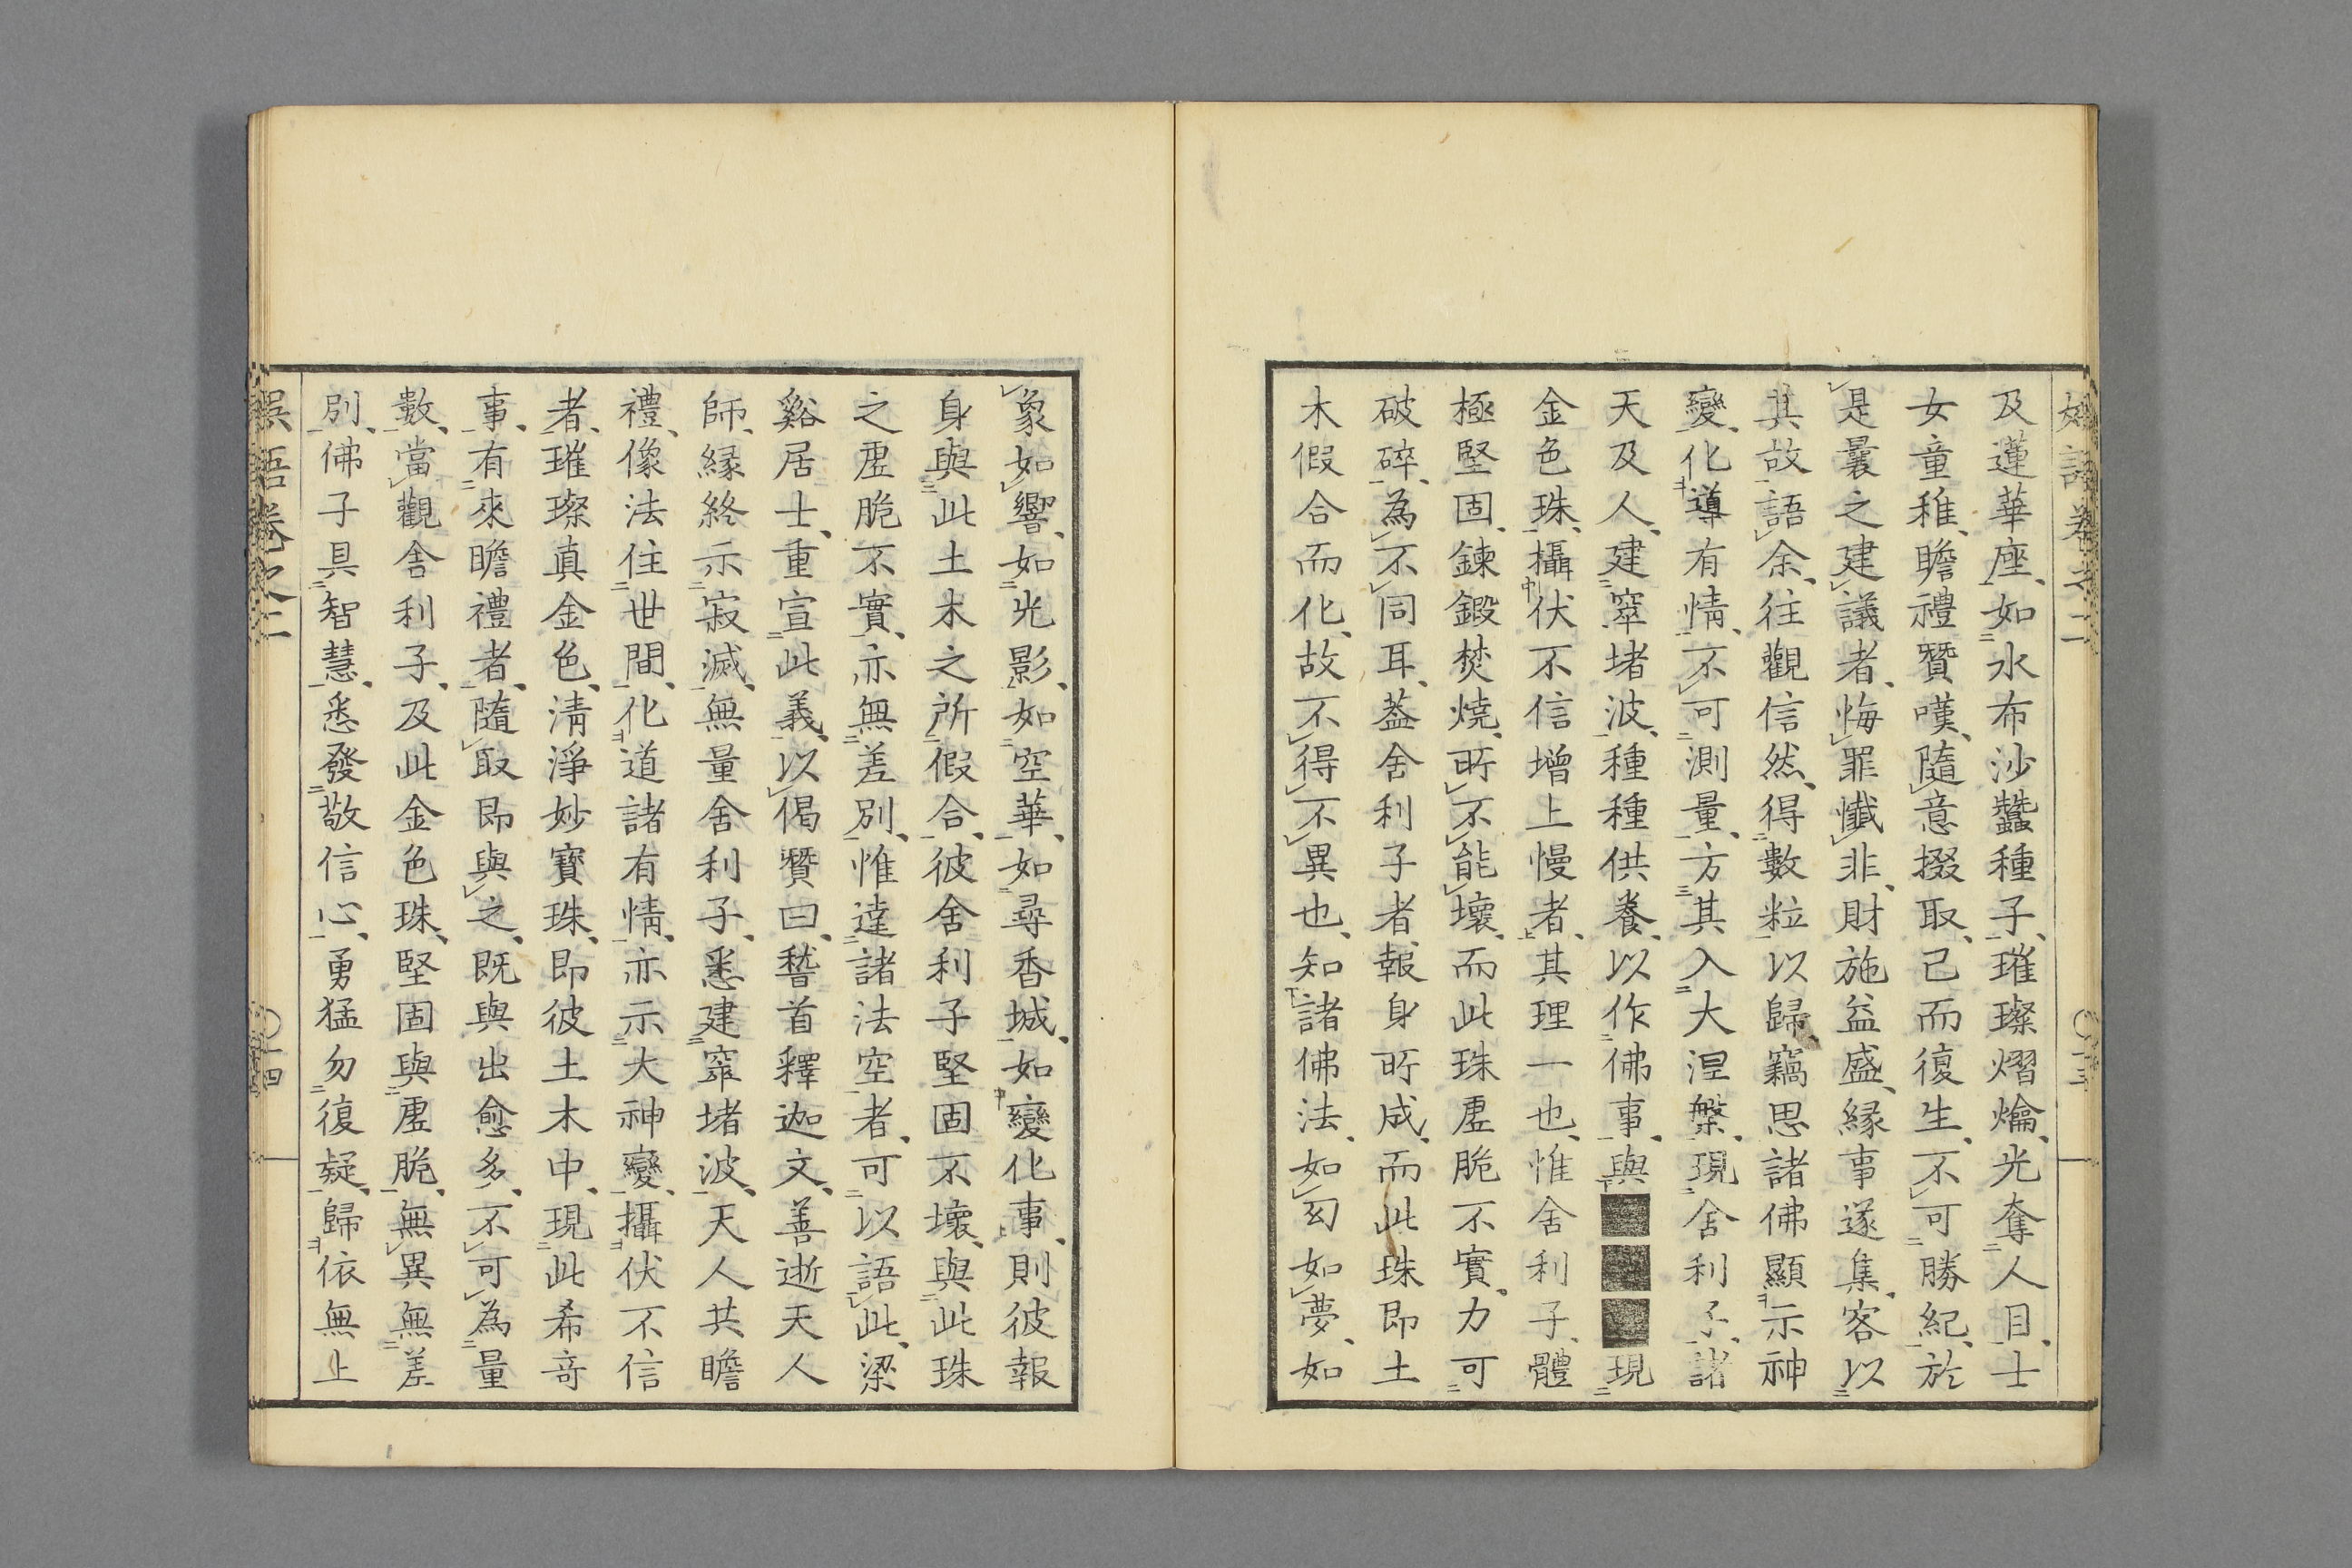 及蓮華座如水布沙蠶種子璀璨熠爚光奪人目士
女童稚瞻禮贊嘆隨意掇取已而復生不可勝紀於
是曩之建議者悔罪懺非財施益盛緣事遂集客以
其故語余往觀信然得數粒以歸竊思諸佛顯示神
變化導有情不可測量方其入大涅槃現舍利子諸
天及人建窣堵波種種供養以作佛事與■■■現
金色珠攝伏不信增上慢者其理一也惟舍利子體
極堅固鍊鍛焚燒所不能壞而此珠虛脆不實力可
破碎為不同耳蓋舍利子者報身所成而此珠即土
木假合而化故不得不異也知諸佛法如幻如夢如
象如響如光影如空華如尋香城如變化事則彼報
身與此土木之所假合彼舍利子堅固不壞與此珠
之虛脆不實亦無差別惟達諸法空者可以語此梁
谿居士重宣此義以偈贊曰稽首釋迦文善逝天人
師緣終示寂滅無量舍利子悉建窣堵波天人共瞻
禮像法住世間化道諸有情亦示大神變攝伏不信
者璀璨真金色清淨妙寶珠即彼土木中現此希奇
事有來瞻禮者隨取即與之既與出愈多不可為量
數當觀舍利子及此金色珠堅固與虛脆無異無差
別佛子具智慧悉發敬信心勇猛勿復疑歸依無上
語卷之二 〇十四